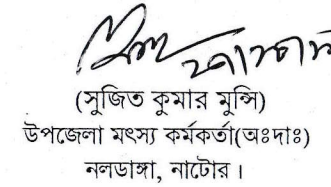 (সুজিত কুমার মুন্সি)
উপজেলা মৎস্য কর্মকর্তা(অঃদাঃ)
নলডাঙ্গা, নাটোর।